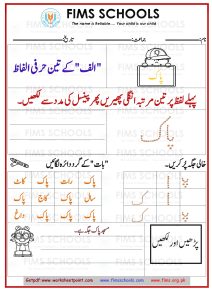 FIMS SCHOOLS
The name is Reliable ... Your child is our child
نام: جماعت: تاریخ:
"الف" کے تین حرفی الفاظ
پاک
پہلے لفظ پر تین مرتبہ انگلی پھیریں پھر پینسل کی مدد سے لکھیں۔
پاک
خالی جگہ پر کریں۔
"پاک" کے گرد دائرہ لگائیں
پاک رات پاک کات
پاک کاج پاک
پاک پاک داغ
مسجد پاک جگہ ہے۔
پڑھیں اور لکھیں
Getpdf www.worksheetpoint.com www.fimsschools.com www.fims.org.pk